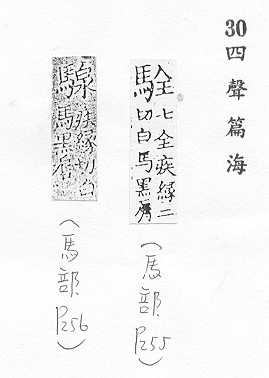 30
四聲篇海
駩 七全疾緣二
切白馬黑脣
（馬部 P255）
䮴 疾緣切白
馬黑脣
（馬部 P256）